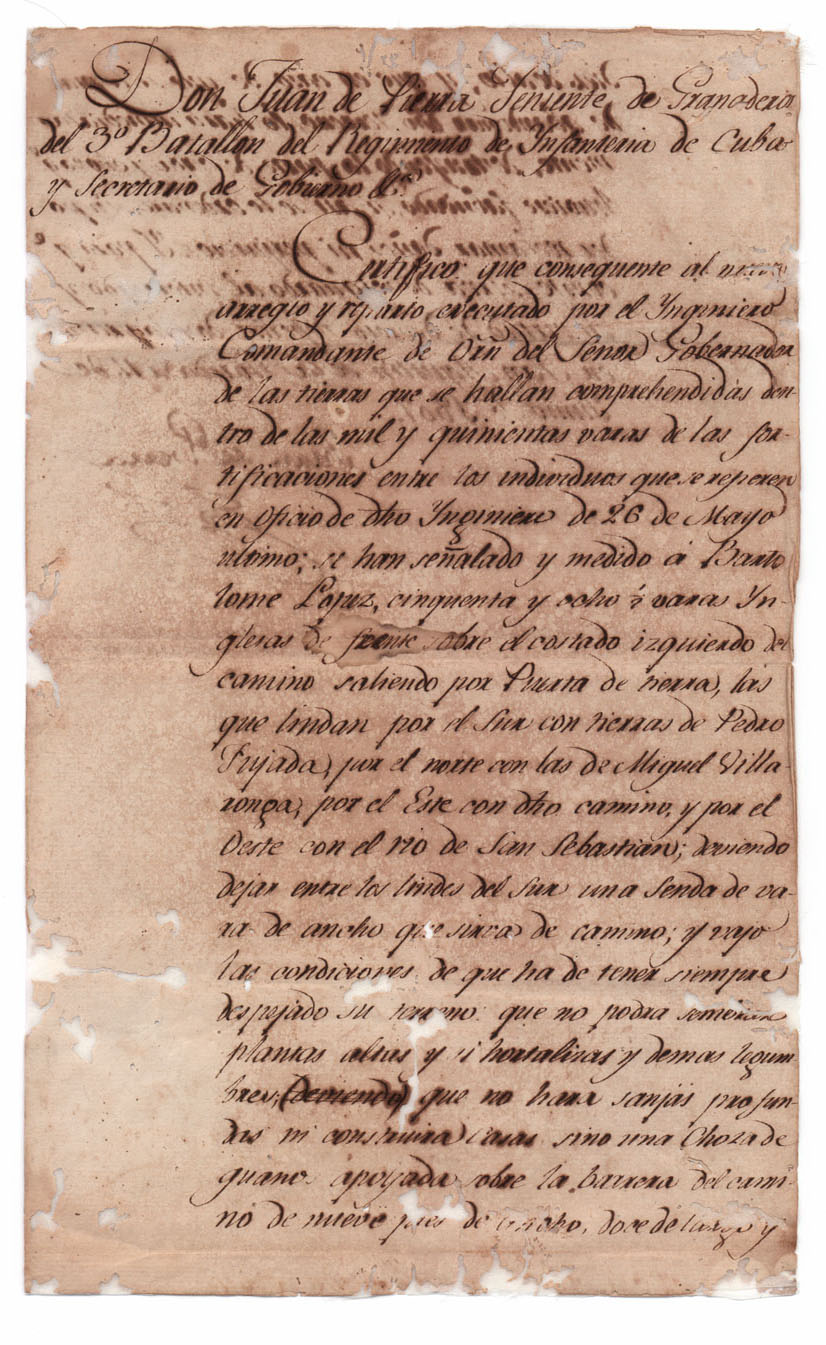 Don Juan de Pierra Teniente de Granaderos
del 3º Batallon del Regimento de Infanteria de Cuba
y Secretario de Gobierno &ª
Certifico: que consequente al nuevo
arreglo y reparto executado por el Yngeniero
Comandante de Orn del Señor Gobernador
de las tierras que se hallan comprehendidas den-
tro de las mil y quinientas varas de las for-
tificaciones entre los individuos que se refieren
en Oficio de dho Yngeniero de 26 de Mayo
ultimo; se han señalado y medido á Barto
lome Lopez, cinquenta y ocho varas Yn-
glesas de frente sobre el costado izquierdo del
camino saliendo por Puerta de tierra, las
que lindan por el Sur con tierras de Pedro
Fujada, por el norte con las de Miguel Villa-
ronga, por el Este con dho camino, y por el
Oeste con el rio de San Sebastian; deviendo
dejar entre los lindes del sur una senda de va-
ra de ancho que sirva de camino; y vajo
las condiciones de que ha de tener siempre
despejado su terreno: que no podra sembrar
plantas altas y si hortalizas y demas legum-
bres; (deviendo) que no hara sanjas profun-
das ni construira casas sino una Choza de
guano apoyada sobre la barrera del cami-
no de nueve pies de ancho, doce de largo y